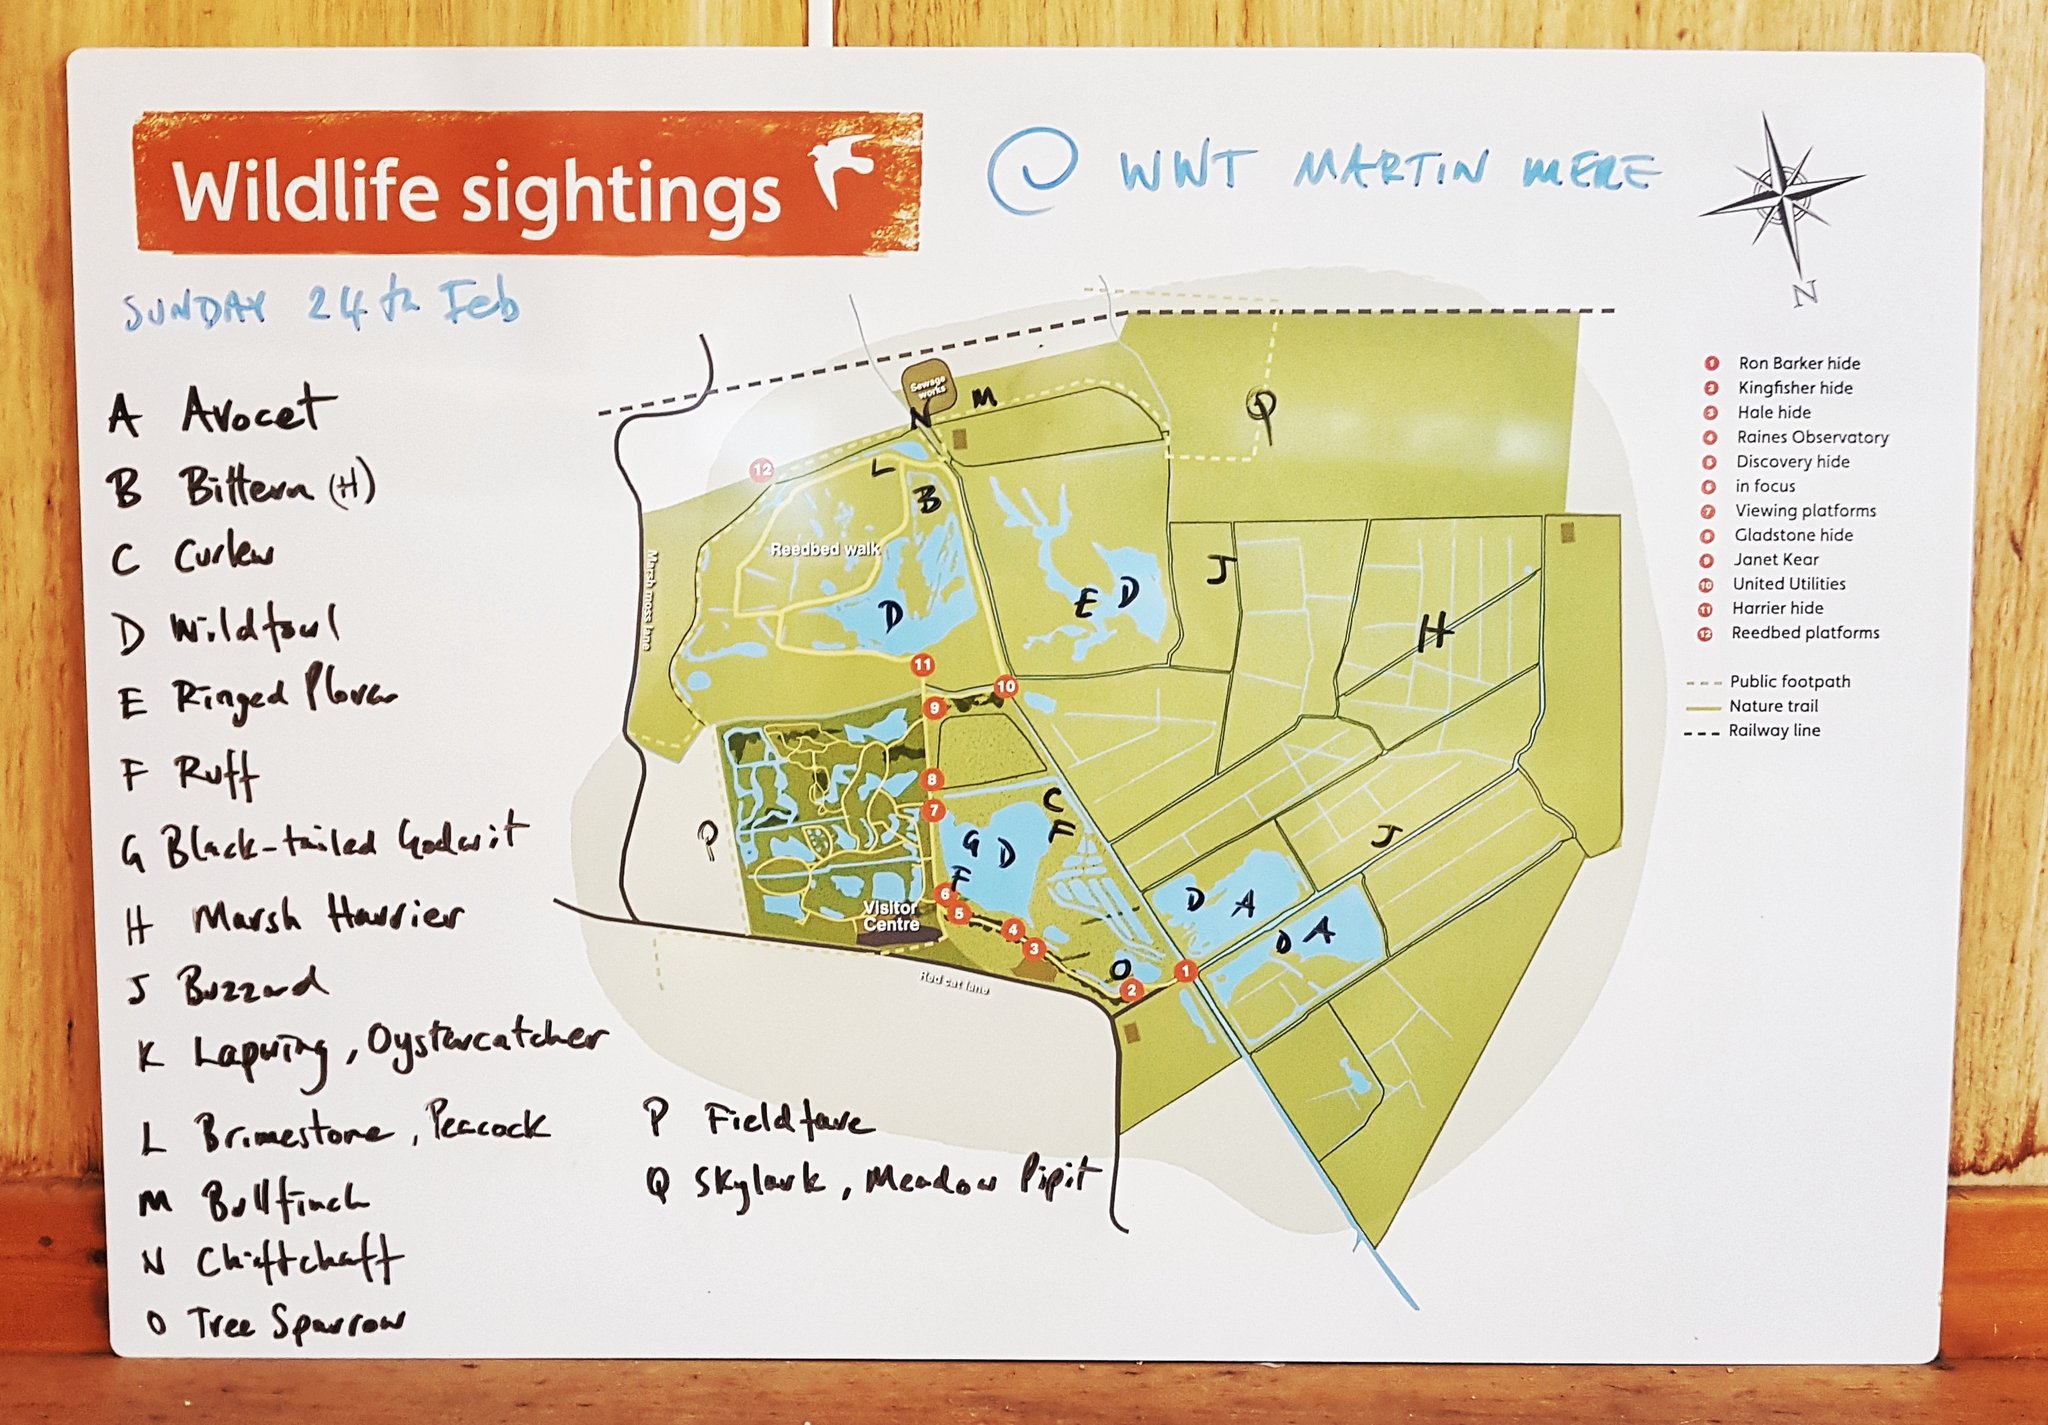 Wildlife sightings
@ WWT MARTIN MERE
SUNDAY 24th Feb
A Avocet
B Bittern (H)
C Curlew
D Wildfowl
E Ringed Plover
F Ruff
G Black-tailed Godwit
H Marsh Harrier
J Buzzard
K Lapwing, Oystercatcher
L Brimestone, Peacock
M Bullfinch
N Chiffchaff
O Tree Sparrow
P Fieldfare
Q Skylark, Meadow Pipit
N
1 Ron Barker hide
2 Kingfisher hide
3 Hale hide
4 Raines Observatory
5 Discovery hide
6 in focus
7 Viewing platforms
8 Gladstone hide
9 Janet Kear
10 United Utilities
11 Harrier hide
12 Reedbed platforms
Public footpath
Nature trail
Railway line
Sewage
works
M
N
Q
12
L
B
Reedbed walk
J
Marsh moss lane
E D
D
H
11
10
9
8
7
C
F
P
G D
J
F
6
D A
Visitor
Centre
5
4
D A
3
O
1
2
Red cat lane